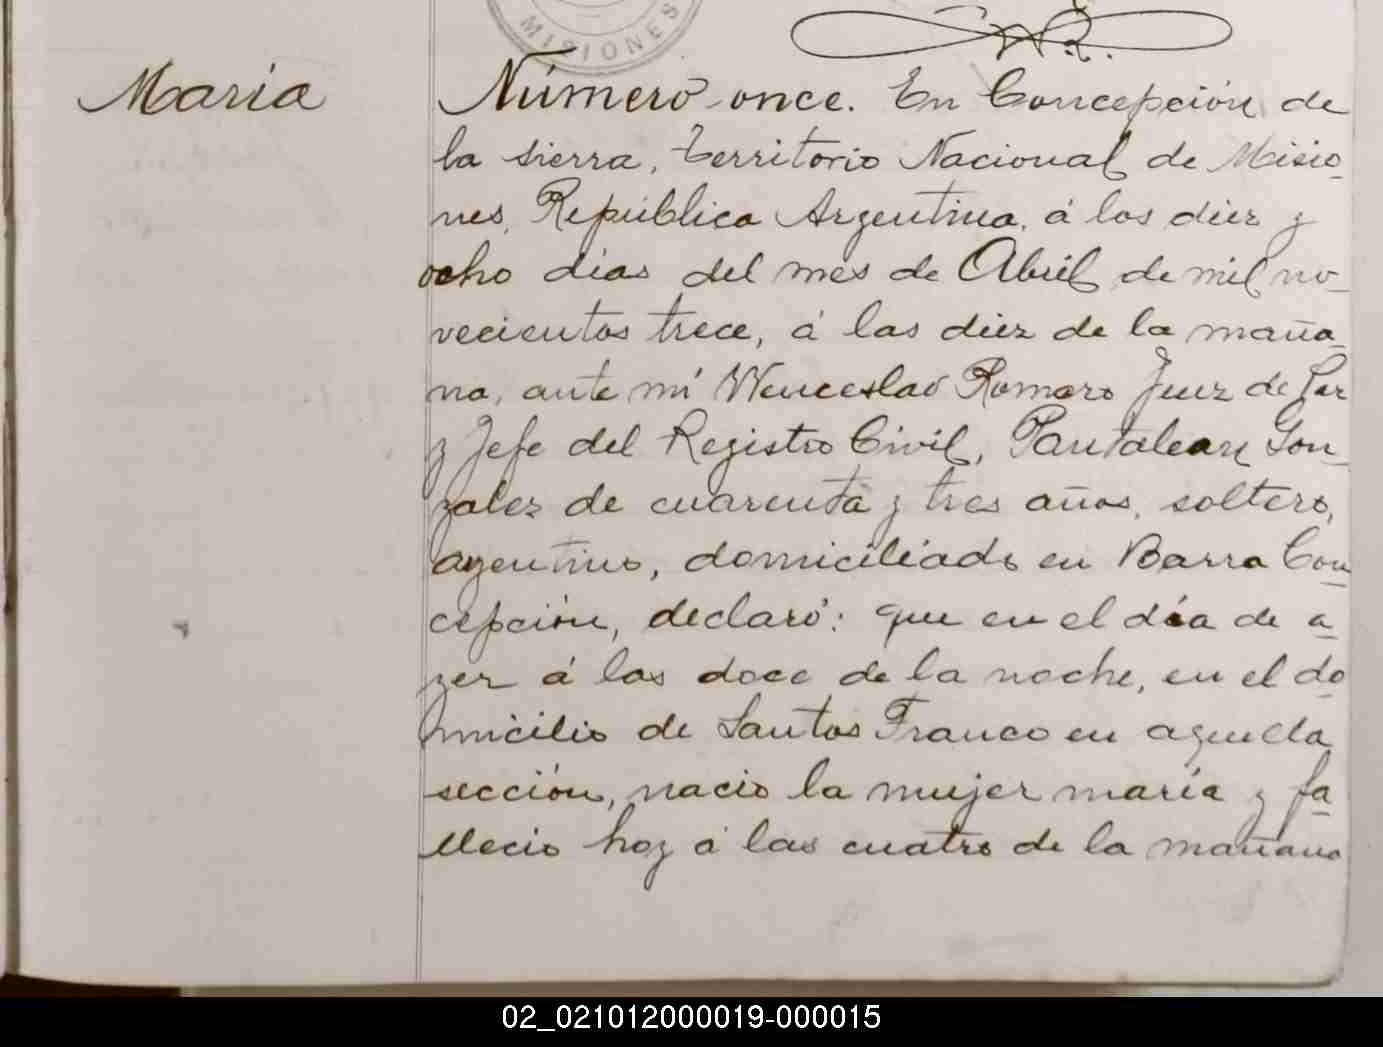 MISIONES
Maria
Número once. En Concepción de
la sierra, territorio Nacional de Misio_
nes, República Argentina, á los diez y
ocho dias del mes de Abril de mil no_
vecientos trece, á las diez de la maña_
na, ante mí Wenceslao Romero Juez de Paz
y Jefe del Registro Civil, Pantaleon Gon_
zalez de cuarenta y tres años, soltero,
agentino, domiciliado en Barra Con_
cepción, declaró: que en el día de a_
yer á las doce de la noche, en el do_
micilio de Santos Franco en aquella
sección, nacio la mujer maría y fa_
llecio hoy á las cuatro de la mañana
02_021012000019-000015